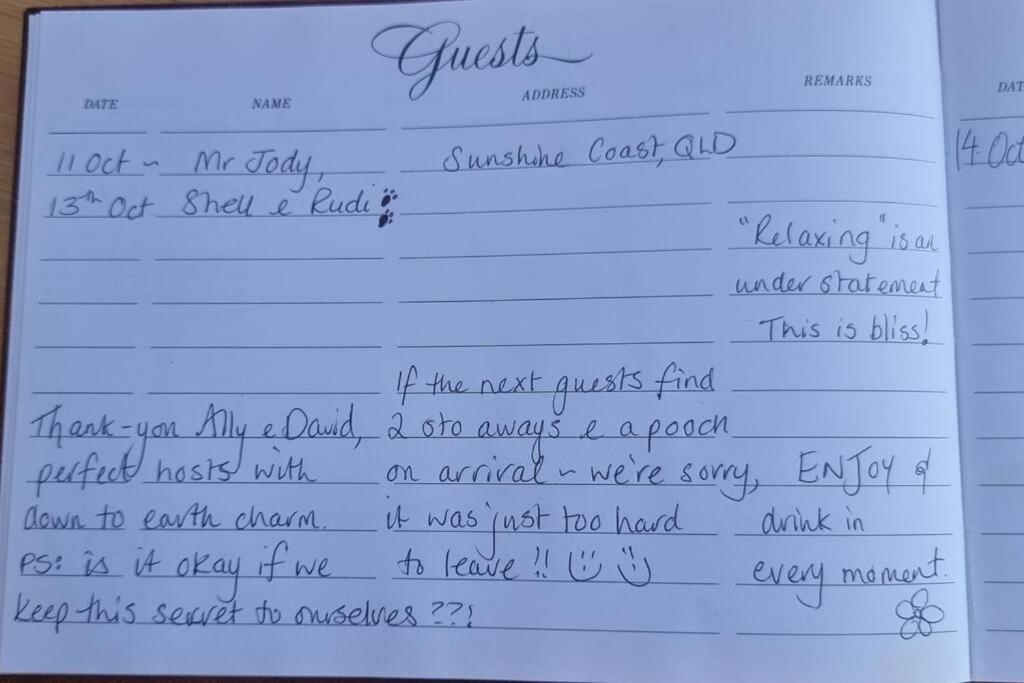 Guests
DATE NAME ADDRESS REMARKS
11 Oct ~ Mr Jody, Sunshine Coast, QLD
13th Oct Shell e Rudi
"Relaxing" is an
under statement
This is bliss!
Thank-you Ally e David,
perfect hosts with
down to earth charm.
PS: is it okay if we
keep this secret to ourselves ??!
If the next guests find
2 sto aways e a pooch
on arrival ~ we're sorry,
it was just too hard
to leave !!
ENJOY &
drink in
every moment.
DAT
14 Oct